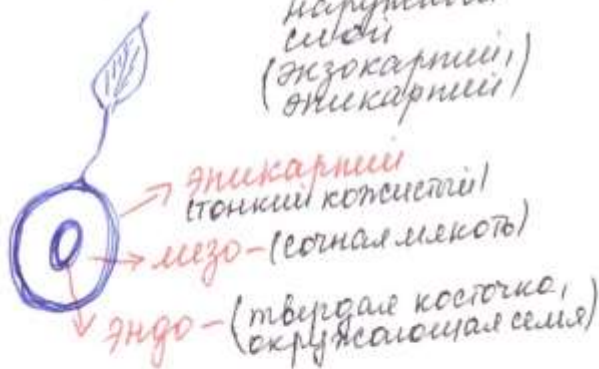 наружный
слой
(экзокарпий,
эпикарпий)
эпикарпий
(тонкий кожистый)
мезо-(сочная мякоть)
эндо-(твердая косточка,
окружающая семя)